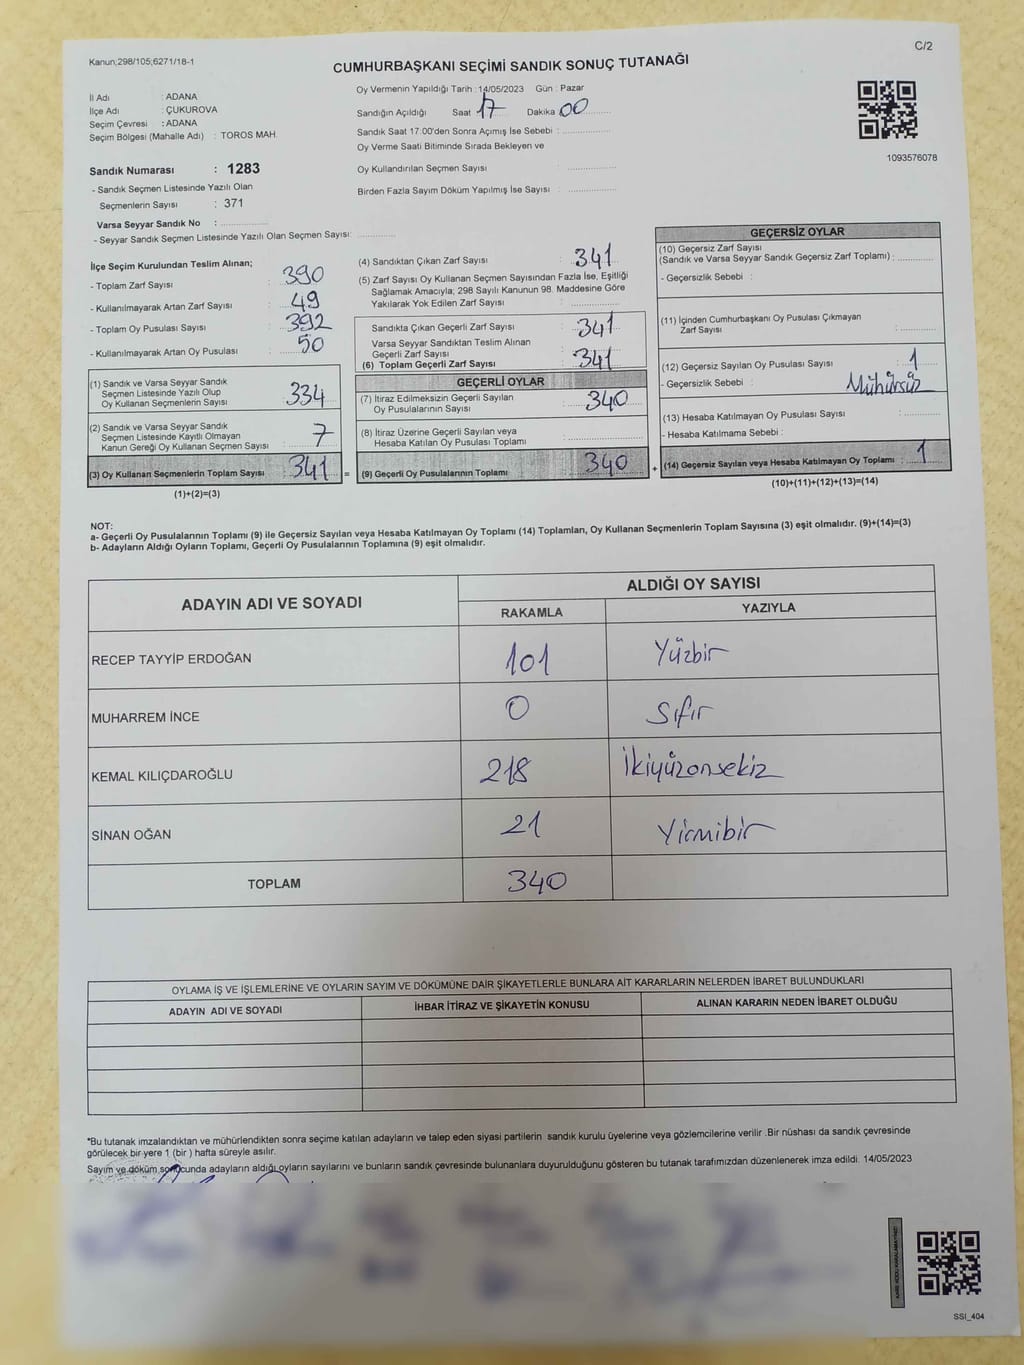 C/2
Kanun;298/105;6271/18-1
CUMHURBAŞKANI SEÇİMİ SANDIK SONUÇ TUTANAĞI
İl Adı : ADANA
İlçe Adı : ÇUKUROVA
Seçim Çevresi : ADANA
Seçim Bölgesi (Mahalle Adı) : TOROS MAH.
Sandık Numarası : 1283
- Sandık Seçmen Listesinde Yazılı Olan
Seçmenlerin Sayısı : 371
Varsa Seyyar Sandık No :
- Seyyar Sandık Seçmen Listesinde Yazılı Olan Seçmen Sayısı:
Oy Vermenin Yapıldığı Tarih : 14/05/2023 Gün : Pazar
Sandığın Açıldığı Saat 17 Dakika 00
Sandık Saat 17:00'den Sonra Açımış İse Sebebi :
Oy Verme Saati Bitiminde Sırada Bekleyen ve
Oy Kullandırılan Seçmen Sayısı :
Birden Fazla Sayım Döküm Yapılmış İse Sayısı :
1093576078
İlçe Seçim Kurulundan Teslim Alınan;
- Toplam Zarf Sayısı : 390
- Kullanılmayarak Artan Zarf Sayısı : 49
- Toplam Oy Pusulası Sayısı : 392
- Kullanılmayarak Artan Oy Pusulası : 50
(1) Sandık ve Varsa Seyyar Sandık
Seçmen Listesinde Yazılı Olup
Oy Kullanan Seçmenlerin Sayısı : 334
(2) Sandık ve Varsa Seyyar Sandık
Seçmen Listesinde Kayıtlı Olmayan
Kanun Gereği Oy Kullanan Seçmen Sayısı : 7
(3) Oy Kullanan Seçmenlerin Toplam Sayısı : 341 =
(1)+(2)=(3)
(4) Sandıktan Çıkan Zarf Sayısı : 341
(5) Zarf Sayısı Oy Kullanan Seçmen Sayısından Fazla İse, Eşitliği
Sağlamak Amacıyla; 298 Sayılı Kanunun 98. Maddesine Göre
Yakılarak Yok Edilen Zarf Sayısı :
Sandıkta Çıkan Geçerli Zarf Sayısı : 341
Varsa Seyyar Sandıktan Teslim Alınan
Geçerli Zarf Sayısı :
(6) Toplam Geçerli Zarf Sayısı : 341
GEÇERLİ OYLAR
(7) İtiraz Edilmeksizin Geçerli Sayılan
Oy Pusulalarının Sayısı : 340
(8) İtiraz Üzerine Geçerli Sayılan veya
Hesaba Katılan Oy Pusulası Toplamı :
(9) Geçerli Oy Pusulalarının Toplamı : 340 +
GEÇERSİZ OYLAR
(10) Geçersiz Zarf Sayısı
(Sandık ve Varsa Seyyar Sandık Geçersiz Zarf Toplamı) :
- Geçersizlik Sebebi :
(11) İçinden Cumhurbaşkanı Oy Pusulası Çıkmayan
Zarf Sayısı :
(12) Geçersiz Sayılan Oy Pusulası Sayısı : 1
- Geçersizlik Sebebi : Mühürsüz
(13) Hesaba Katılmayan Oy Pusulası Sayısı :
- Hesaba Katılmama Sebebi :
(14) Geçersiz Sayılan veya Hesaba Katılmayan Oy Toplamı : 1
(10)+(11)+(12)+(13)=(14)
NOT:
a- Geçerli Oy Pusulalarının Toplamı (9) ile Geçersiz Sayılan veya Hesaba Katılmayan Oy Toplamı (14) Toplamları, Oy Kullanan Seçmenlerin Toplam Sayısına (3) eşit olmalıdır. (9)+(14)=(3)
b- Adayların Aldığı Oyların Toplamı, Geçerli Oy Pusulalarının Toplamına (9) eşit olmalıdır.
ADAYIN ADI VE SOYADI ALDIĞI OY SAYISI
RAKAMLA YAZIYLA
RECEP TAYYİP ERDOĞAN 101 Yüzbir
MUHARREM İNCE 0 Sıfır
KEMAL KILIÇDAROĞLU 218 İkiyüzonsekiz
SİNAN OĞAN 21 Yirmibir
TOPLAM 340
OYLAMA İŞ VE İŞLEMLERİNE VE OYLARIN SAYIM VE DÖKÜMÜNE DAİR ŞİKAYETLERLE BUNLARA AİT KARARLARIN NELERDEN İBARET BULUNDUKLARI
ADAYIN ADI VE SOYADI İHBAR İTİRAZ VE ŞİKAYETİN KONUSU ALINAN KARARIN NEDEN İBARET OLDUĞU
*Bu tutanak imzalandıktan ve mühürlendikten sonra seçime katılan adayların ve talep eden siyasi partilerin sandık kurulu üyelerine veya gözlemcilerine verilir .Bir nüshası da sandık çevresinde
görülecek bir yere 1 (bir ) hafta süreyle asılır.
Sayım ve döküm sonucunda adayların aldığı oyların sayılarını ve bunların sandık çevresinde bulunanlara duyurulduğunu gösteren bu tutanak tarafımızdan düzenlenerek imza edildi. 14/05/2023
SSI_404